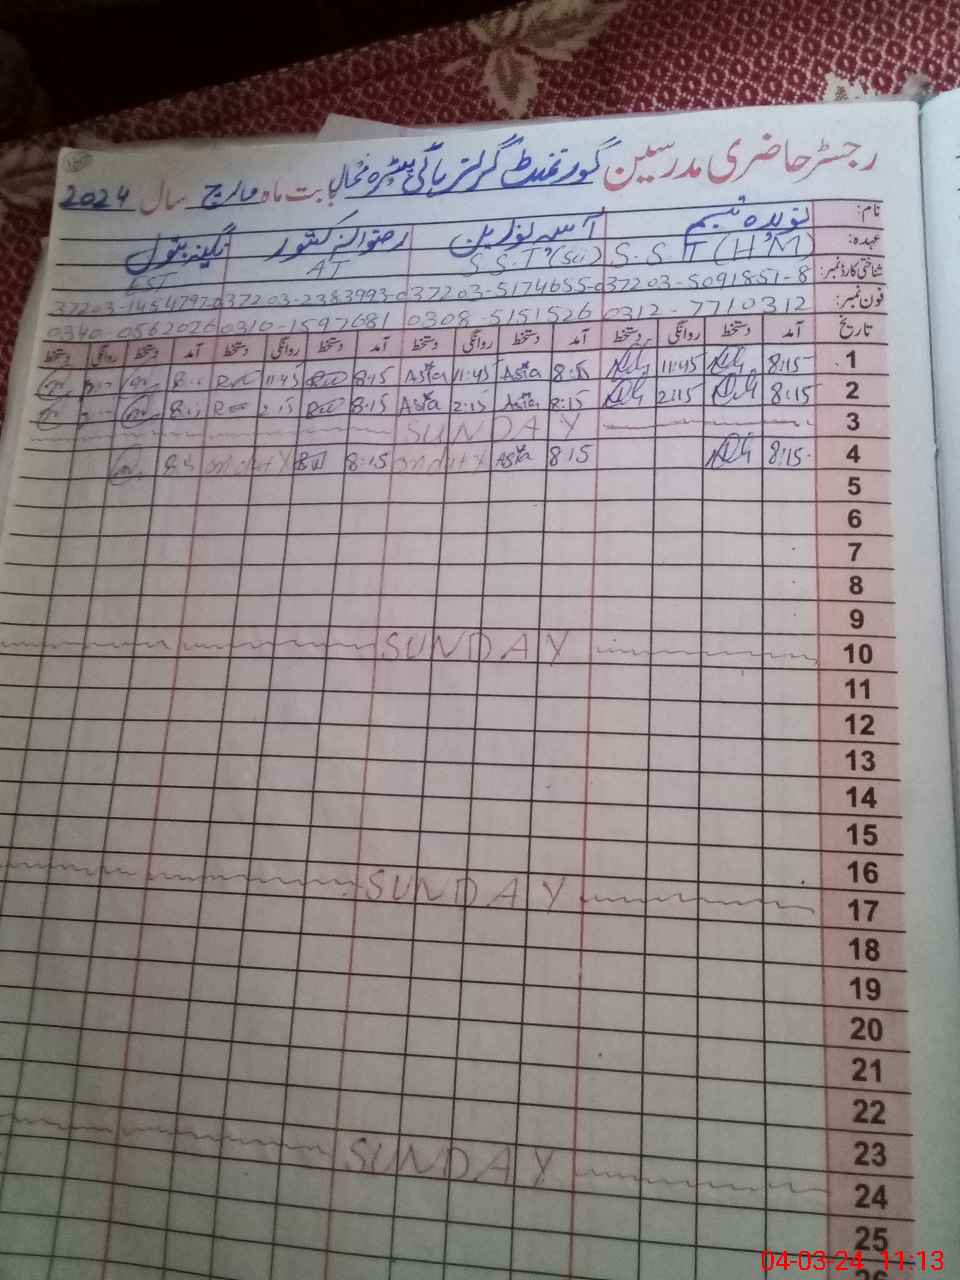 رجسٹر حاضری مدرسین گورنمنٹ گرلز ہائی بابت ماہ مارچ سال 2024
نام: نویدہ نسیم آسیہ نورین رضوانہ کوثر نگینہ بتول
عہدہ: S.S.T (H.M) S.S.T (Sci) AT EST
شناختی کارڈ نمبر: 37203-5091851-8 37203-5174655-0 37203-2383993-0 37203-1454797-0
فون نمبر: 0312-7710312 0308-5151526 0310-1597681 0340-0562026
تاریخ آمد دستخط روانگی دستخط آمد دستخط روانگی دستخط آمد دستخط روانگی دستخط آمد دستخط روانگی دستخط
1 8:15 11:45 8:15 Asia 11:45 Asia 8:15 11:45
2 8:15 2:15 8:15 Asia 2:15 Asia 8:15 2:15
3 SUNDAY
4 8:15 8:15 Asia on duty 8:15 on duty
5
6
7
8
9
10 SUNDAY
11
12
13
14
15
16
17 SUNDAY
18
19
20
21
22
23
24 SUNDAY
25
04-03-24 11:13